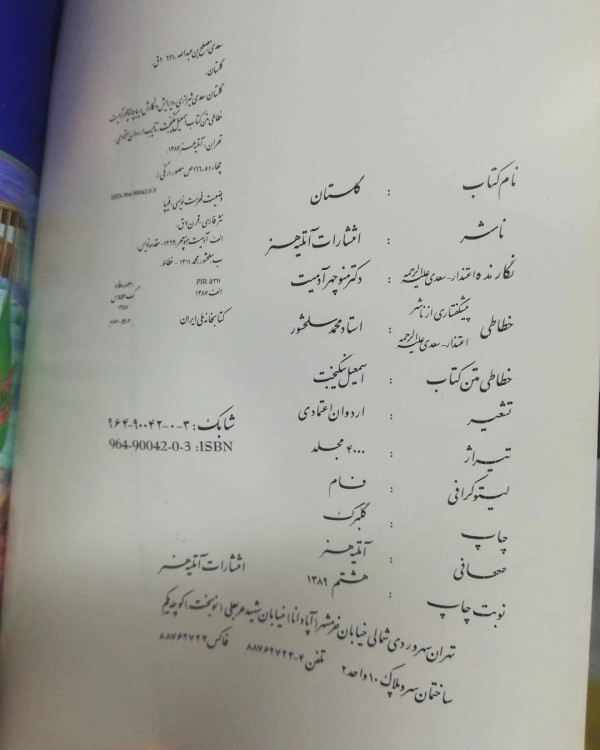 سعدی، مصلح بن عبدالله، ۶۹۱ ق.
گلستان.
گلستان سعدی شیرازی،
خطاطی متن کتاب اسمعیل نیکبخت، اردوان اعتمادی.
تهران: آتلیه هنر، ۱۳۸۷.
چهارده، ۱۶۶ ص. مصور (رنگی).
ISBN:964-90042-0-3
وضعیت فهرست نویسی: فیپا
نثر فارسی - قرن ۷ ق.
الف. آدمیت، منوچهر، مقدمه‌نویس.
ب. سلحشور، محمد، ۱۳۱۱ - خطاط.
PIR ۵۲۱۱
الف ۱۳۸۷
کتابخانه ملی ایران
نام کتاب : گلستان
ناشر : انتشارات آتلیه هنر
نگارنده اعتذار - سعدی علیه الرحمه : دکتر منوچهر آدمیت
خطاطی پیشگفتاری از ناشر
اعتذار - سعدی علیه الرحمه : استاد محمد سلحشور
خطاطی متن کتاب : اسمعیل نیکبخت
تشعیر : اردوان اعتمادی
تیراژ : ۴۰۰۰ مجلد
لیتوگرافی : فام
چاپ : گلبرگ
صحافی : آتلیه هنر
نوبت چاپ : هشتم ۱۳۸۹
شابک: ۳-۰-۹۰۰۴۲-۹۶۴
964-90042-0-3 :ISBN
انتشارات آتلیه هنر
تهران سهروردی شمالی خیابان خرمشهر (آپادانا) خیابان شهید عربعلی (نوبخت) کوچه یکم
ساختمان سرو پلاک ۱۰ واحد ۲ تلفن ۴-۸۸۷۶۲۷۲۳ فاکس ۸۸۷۶۹۷۲۴